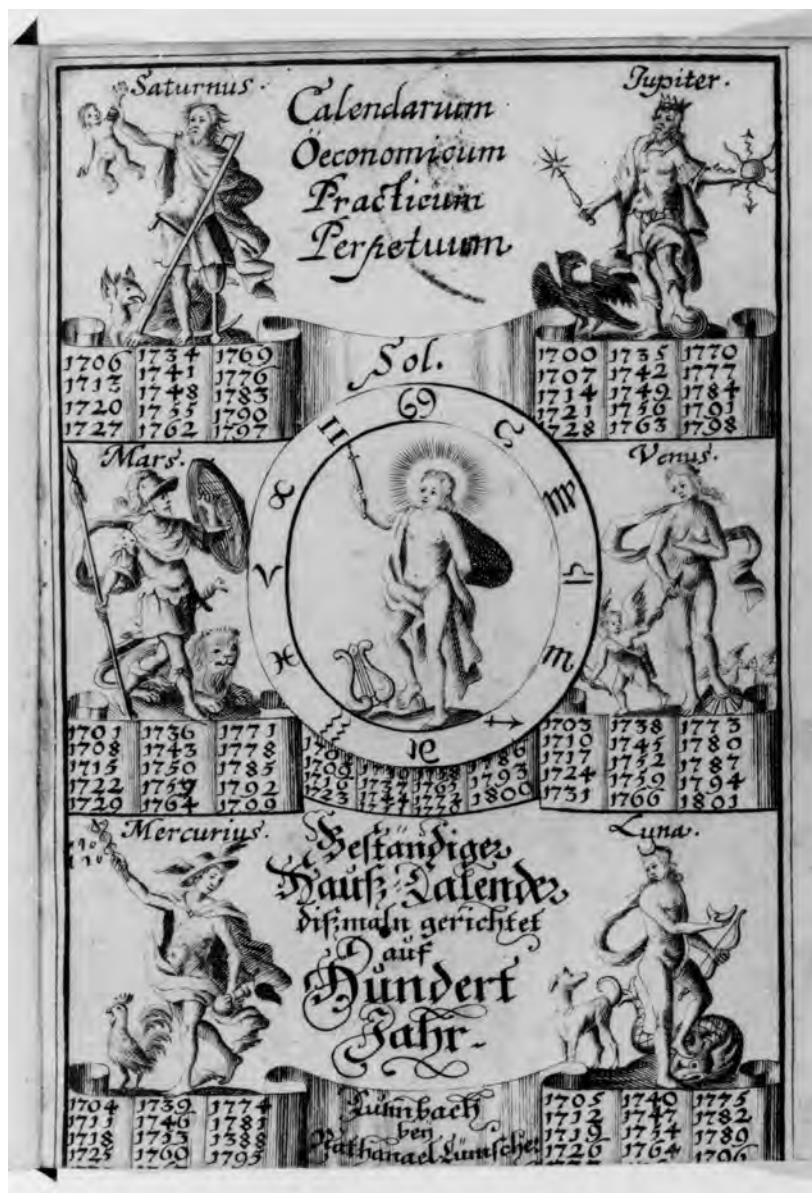 Saturnus.
Calendarum
Öeconomicum
Practicum
Perpetuum
Jupiter.
1706 1734 1769
1713 1741 1776
1720 1748 1783
1727 1755 1790
1762 1797
Sol.
1700 1735 1770
1707 1742 1777
1714 1749 1784
1721 1756 1791
1728 1763 1798
Mars.
Venus.
♋ ♌ ♍ ♎ ♏ ♐ ♑ ♒ ♓ ♈ ♉ ♊
1701 1736 1771
1708 1743 1778
1715 1750 1785
1722 1757 1792
1729 1764 1709
1709 1786
1716 1793
1723 1744 1800
1703 1738 1773
1710 1745 1780
1717 1752 1787
1724 1759 1794
1731 1766 1801
Mercurius.
Beständiger
Hauß-Calender
dißmaln gerichtet
auf
Hundert
Jahr.
Luna.
1704 1739 1774
1711 1746 1781
1718 1753 1388
1725 1760 1795
bey
Nathanael
1705 1740 1775
1712 1747 1782
1719 1754 1789
1726 1764 1796